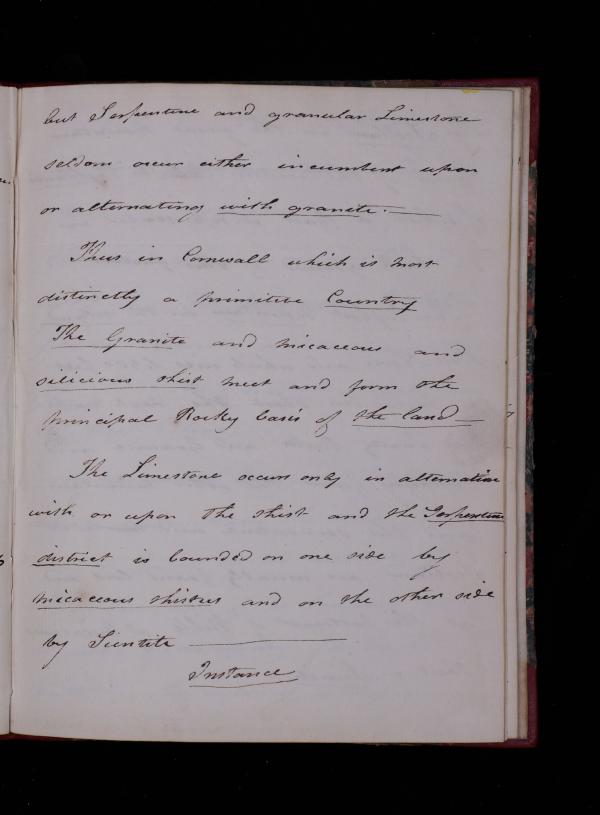 but Serpentine and granular Limestone
seldom occur either incumbent upon
or alternating with granite. —
Thus in Cornwall which is most
distinctly a primitive Country
The Granite and micaceous and
silicious shist meet and form the
principal Rocky basis of the land —
The Limestone occurs only in alternation
with or upon the shist and the Serpentine
district is bounded on one side by
micaceous shistus and on the other side
by Sientite —
Instance